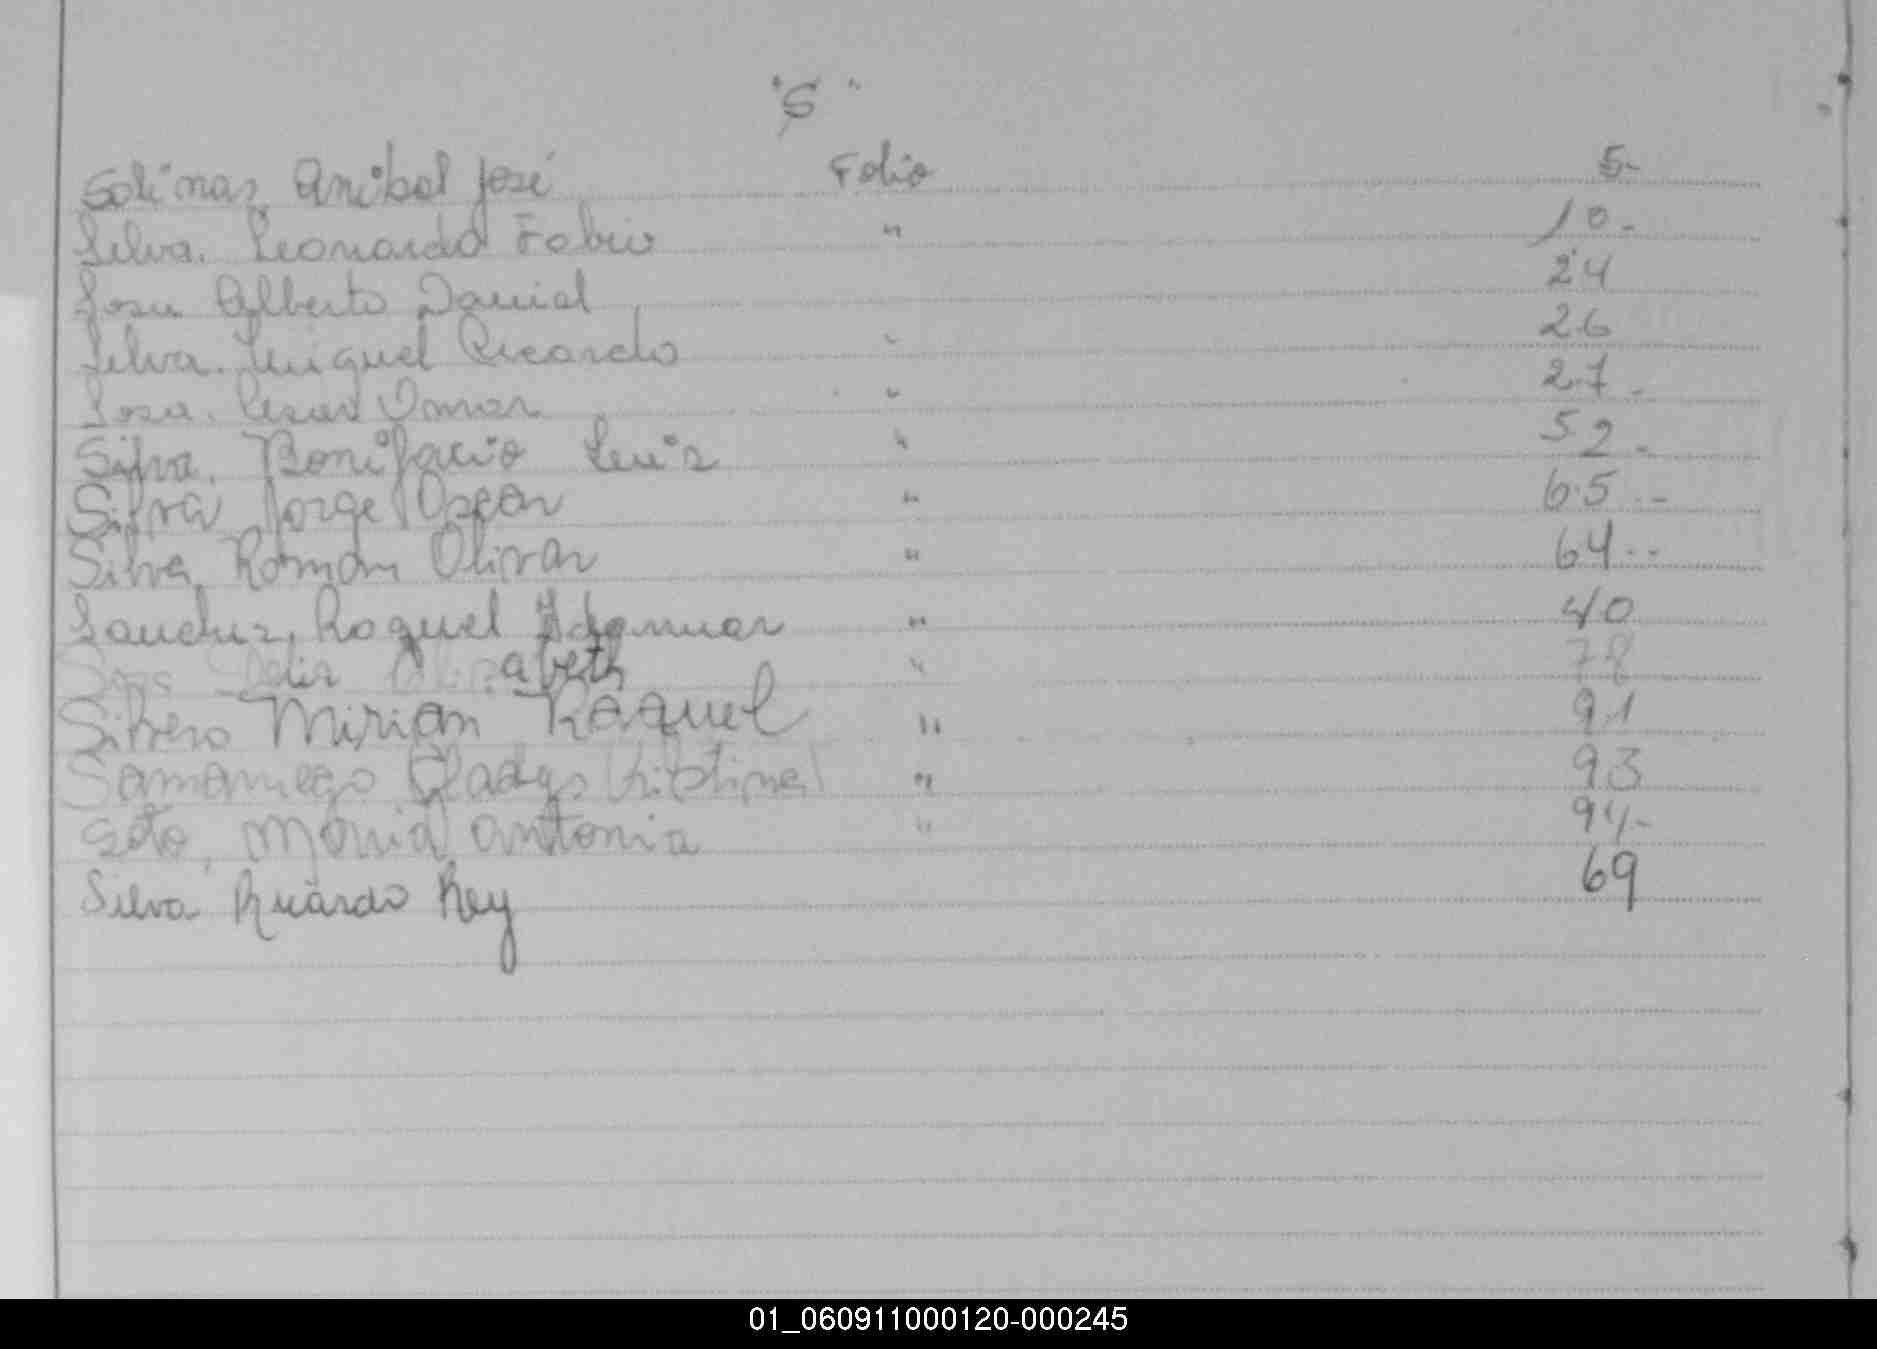 "S"
Solinas, Anibal José Folio 5-
Silva. Leonardo Fabio " 10-
Sosa Alberto Daniel 24
Silva. Miguel Ricardo " 26
Sosa. Cesar Omar " 27-
Silva, Bonifacio Luis " 52-
Silva Jorge Oscar " 65--
Silva, Roman Olivar " 64--
Sanchez, Raquel " 40
Sosa Delia Elizabeth " 78
Silvero Mirian Raquel " 91
Samaniego Gladys Cristina " 93
Soto, Maria Antonia " 94-
Silva Ricardo Rey 69
01_060911000120-000245